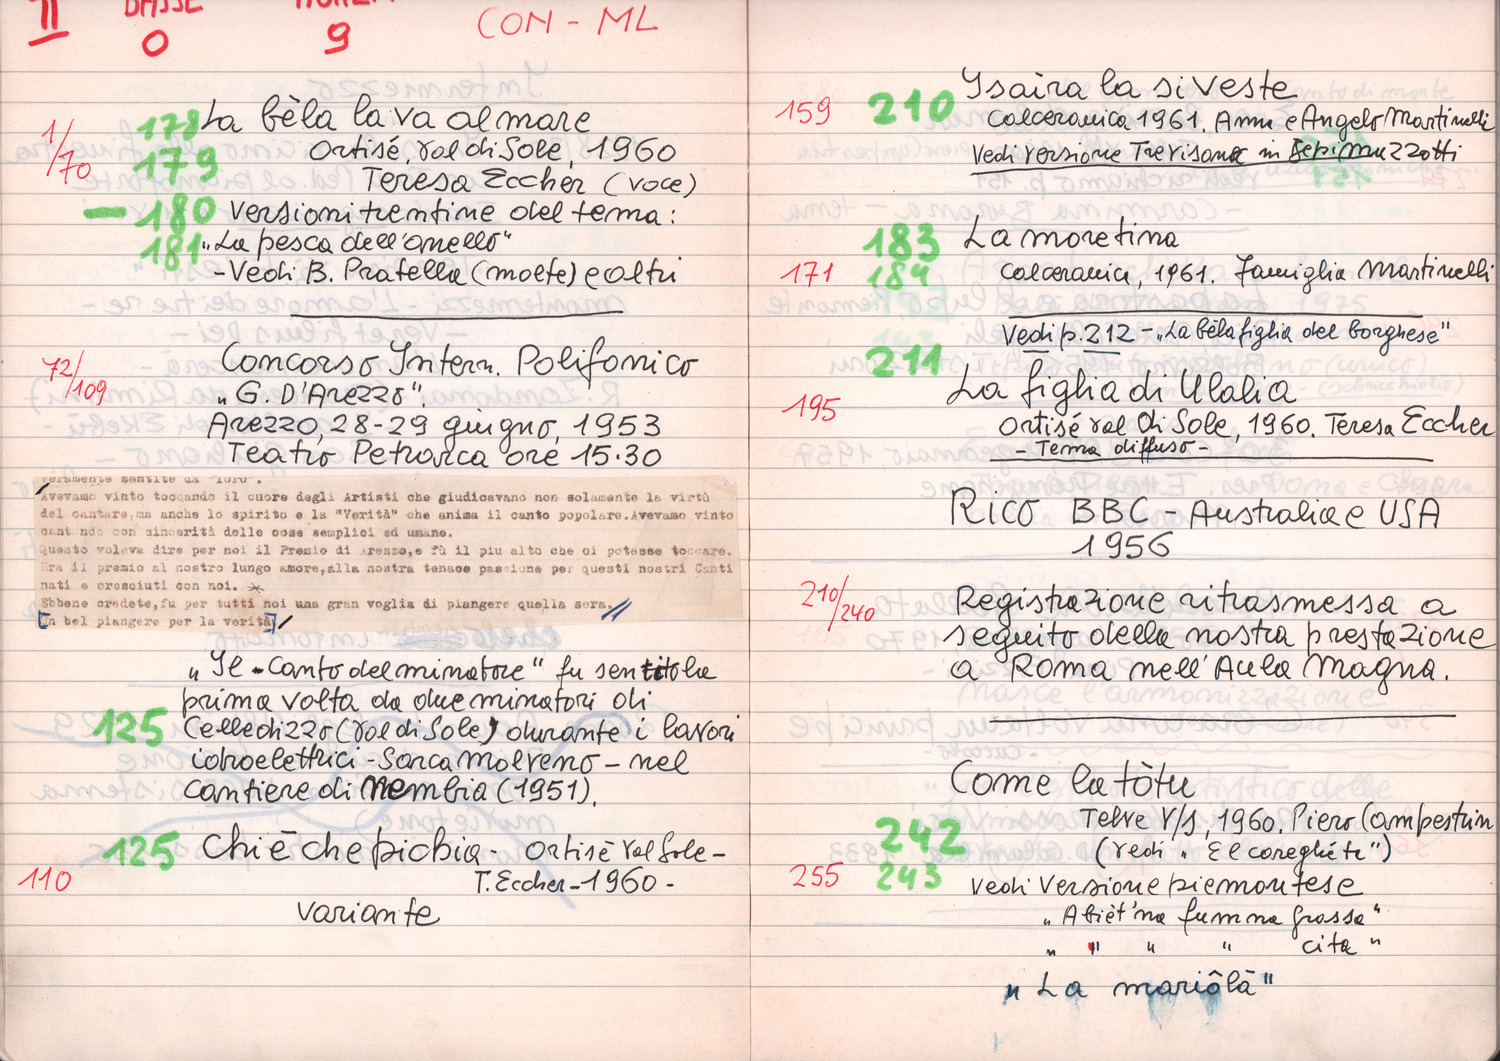 II BASSE
0 9 CON - ML
1/70
178 La bèla la va al mare
179 Ortisé, Val di Sole, 1960
Teresa Eccher (voce)
- 180 Versioni trentine del tema:
181 „La pesca dell'anello"
- Vedi B. Pratella (molte) e altri
72/109
Concorso Intern. Polifonico
„G. D'Arezzo".
Arezzo, 28-29 giugno, 1953
Teatro Petrarca ore 15.30
veramente sentite da "loro".
Avevamo vinto toccando il cuore degli Artisti che giudicavano non solamente la virtù
del cantare,ma anche lo spirito e la "Verità" che anima il canto popolare.Avevamo vinto
cantando con sincerità delle cose semplici ed umane.
Questo voleva dire per noi il Premio di Arezzo,e fù il piu alto che ci potesse toccare.
Era il premio al nostro lungo amore,alla nostra tenace passione per questi nostri Canti
nati e cresciuti con noi.
Ebbene credete,fu per tutti noi una gran voglia di piangere quella sera.
[Un bel piangere per la verità]
„Il - Canto del minatore" fu sentito la
prima volta da due minatori di
125 Celledizzo (Val di Sole) durante i lavori
idroelettrici - Sarca Molveno - nel
cantiere di Nembia (1951).
125 Chi è che pichia - Ortisè Val Sole -
110 T. Eccher - 1960 -
variante
159 210 Isaira la si veste
Calceranica 1961. Anna e Angelo Martinelli
Vedi versione Trevisana in Bepi Muzzotti
183 La moretina
171 184 Calceranica, 1961. Famiglia Martinelli
Vedi p. 212 - „La bèla figlia del borghese"
211
195 La figlia di Ulalia
Ortisé Val di Sole, 1960. Teresa Eccher
- Tema diffuso -
Rico BBC - Australia e USA
1956
210/240 Registrazione ritrasmessa a
seguito della nostra prestazione
a Roma nell'Aula Magna.
Come la tòtu
Telve V/s, 1960. Piero Campestrin
242 (vedi „El careghéte")
255 243 Vedi Versione piemontese
„A bièt'na fumna grossa"
„ „ „ „ cita "
„La mariôlà"